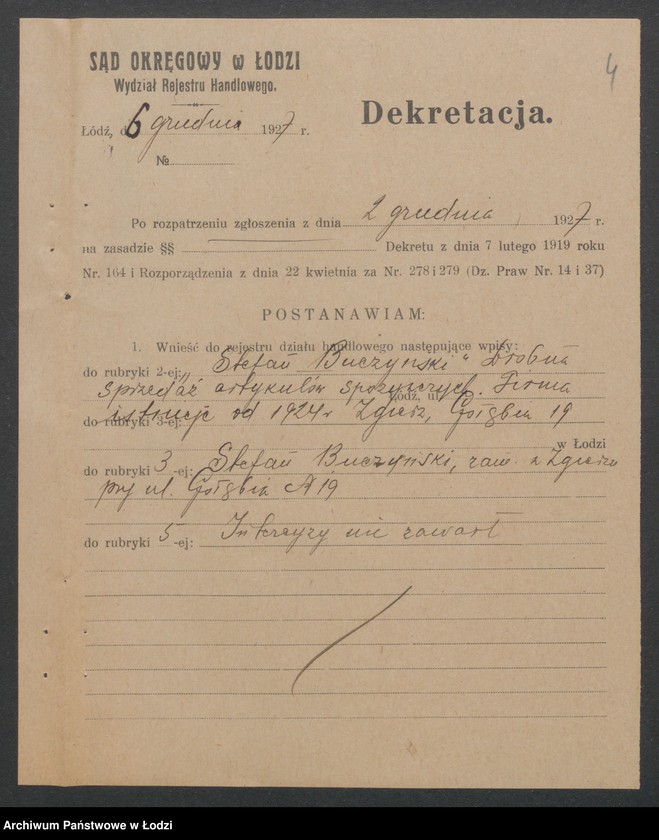 4
SĄD OKRĘGOWY w ŁODZI
Wydział Rejestru Handlowego.
Dekretacja.
Łódź, d 6 grudnia 1927 r.
№
Po rozpatrzeniu zgłoszenia z dnia 2 grudnia 1927 r.
na zasadzie §§ Dekretu z dnia 7 lutego 1919 roku
Nr. 164 i Rozporządzenia z dnia 22 kwietnia za Nr. 278 i 279 (Dz. Praw Nr. 14 i 37)
POSTANAWIAM:
1. Wnieść do rejestru działu handlowego następujące wpisy:
do rubryki 2-ej: „Stefan Buczyński" Drobna
sprzedaż artykułów spożywczych. Firma
Łódź, ul.
do rubryki 3-ej: istnieje od 1924 r Zgierz, Gołębia 19
w Łodzi
do rubryki 3-ej: Stefan Buczyński, zam. w Zgierzu
przy ul. Gołębia № 19
do rubryki 5-ej: Intercyzy nie zawarł
Archiwum Państwowe w Łodzi